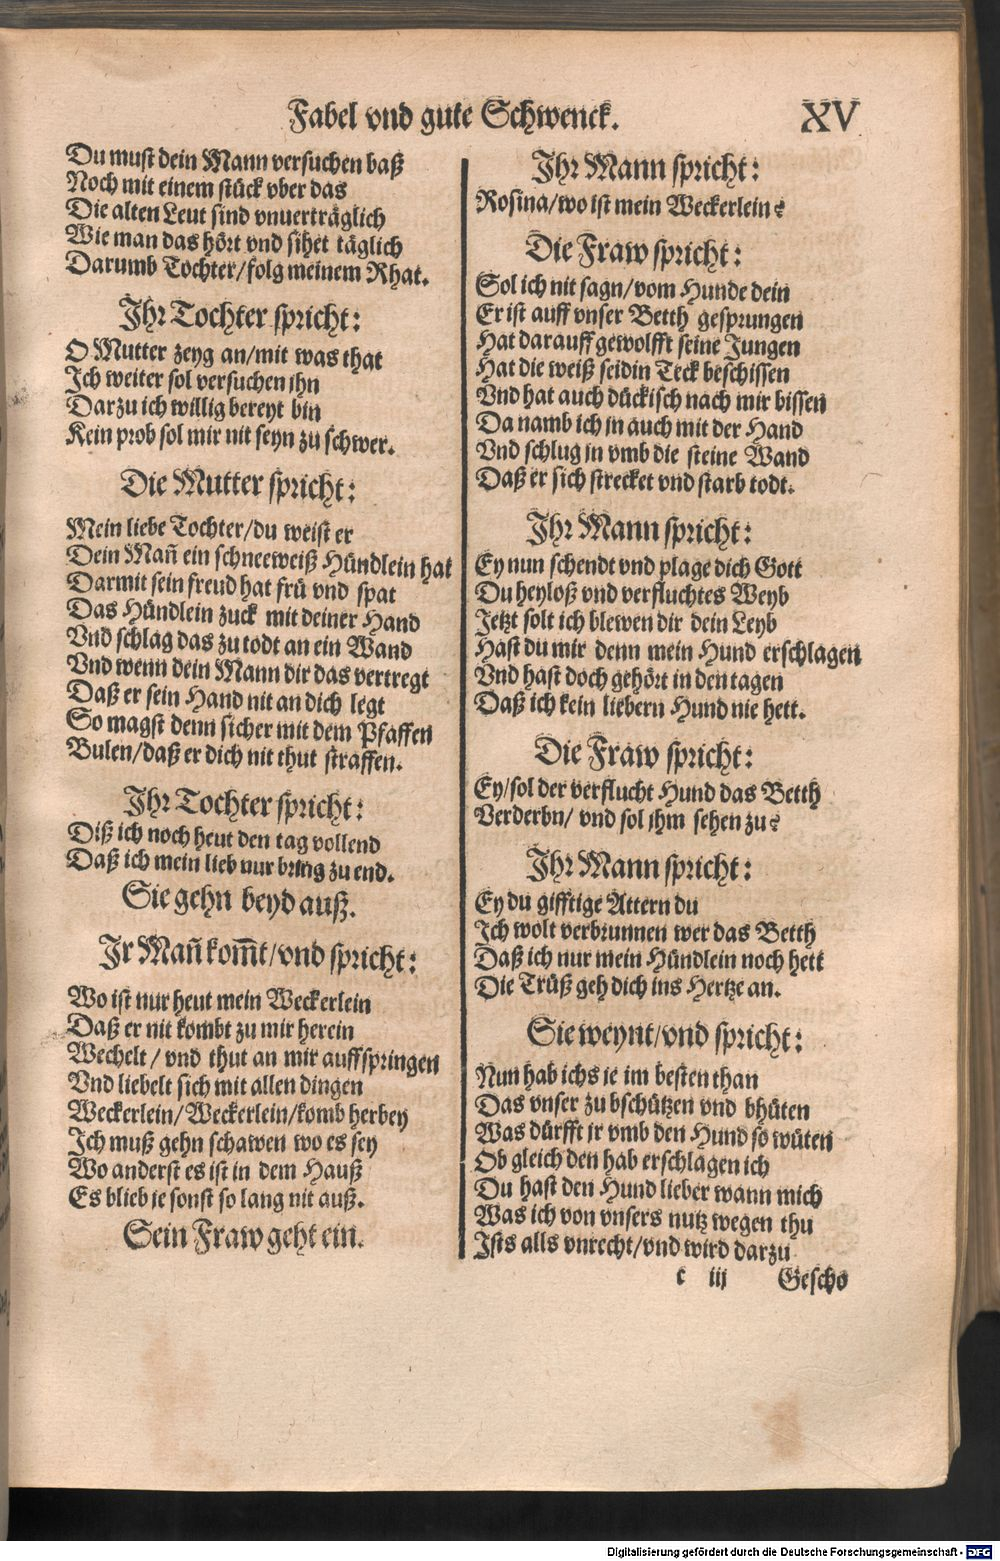 Fabel vnd gute Schwenck. XV
Du must dein Mann versuchen baß
Noch mit einem stück vber das
Die alten Leut sind vnuerträglich
Wie man das hört vnd sihet täglich
Darumb Tochter/folg meinem Rhat.
Ihr Tochter spricht:
O Mutter zeyg an/mit was that
Ich weiter sol versuchen ihn
Darzu ich willig bereyt bin
Kein prob sol mir nit seyn zu schwer.
Die Mutter spricht:
Mein liebe Tochter/du weist er
Dein Mañ ein schneeweiß Hündlein hat
Darmit sein freud hat frü vnd spat
Das Hündlein zuck mit deiner Hand
Vnd schlag das zu todt an ein Wand
Vnd wenn dein Mann dir das vertregt
Daß er sein Hand nit an dich legt
So magst denn sicher mit dem Pfaffen
Bulen/daß er dich nit thut straffen.
Ihr Tochter spricht:
Diß ich noch heut den tag vollend
Daß ich mein lieb nur bring zu end.
Sie gehn beyd auß.
Ir Mañ kom̃t/vnd spricht:
Wo ist nur heut mein Weckerlein
Daß er nit kombt zu mir herein
Wechelt/ vnd thut an mir auffspringen
Vnd liebelt sich mit allen dingen
Weckerlein/Weckerlein/komb herbey
Ich muß gehn schawen wo es sey
Wo anderst es ist in dem Hauß
Es blieb ie sonst so lang nit auß.
Sein Fraw geht ein.
Ihr Mann spricht:
Rosina/wo ist mein Weckerlein?
Die Fraw spricht:
Sol ich nit sagn/vom Hunde dein
Er ist auff vnser Betth gesprungen
Hat darauff gewolfft seine Jungen
Hat die weiß seidin Teck beschissen
Vnd hat auch dückisch nach mir bissen
Da namb ich jn auch mit der Hand
Vnd schlug jn vmb die steine Wand
Daß er sich strecket vnd starb todt.
Ihr Mann spricht:
Ey nun schendt vnd plage dich Gott
Du heyloß vnd verfluchtes Weyb
Jetzt solt ich blewen dir dein Leyb
Hast du mir denn mein Hund erschlagen
Vnd hast doch gehört in den tagen
Daß ich kein liebern Hund nie hett.
Die Fraw spricht:
Ey/sol der verflucht Hund das Betth
Verderbn/ vnd sol ihm sehen zu?
Ihr Mann spricht:
Ey du gifftige Attern du
Ich wolt verbrunnen wer das Betth
Daß ich nur mein Hündlein noch hett
Die Trüß geh dich ins Hertze an.
Sie weynt/vnd spricht:
Nun hab ichs ie im besten than
Das vnser zu bschützen vnd bhüten
Was dürfft jr vmb den Hund so wüten
Ob gleich den hab erschlagen ich
Du hast den Hund lieber wann mich
Was ich von vnsers nutz wegen thu
Ists alls vnrecht/vnd wird darzu
c iij Gescho
Digitalisierung gefördert durch die Deutsche Forschungsgemeinschaft - DFG